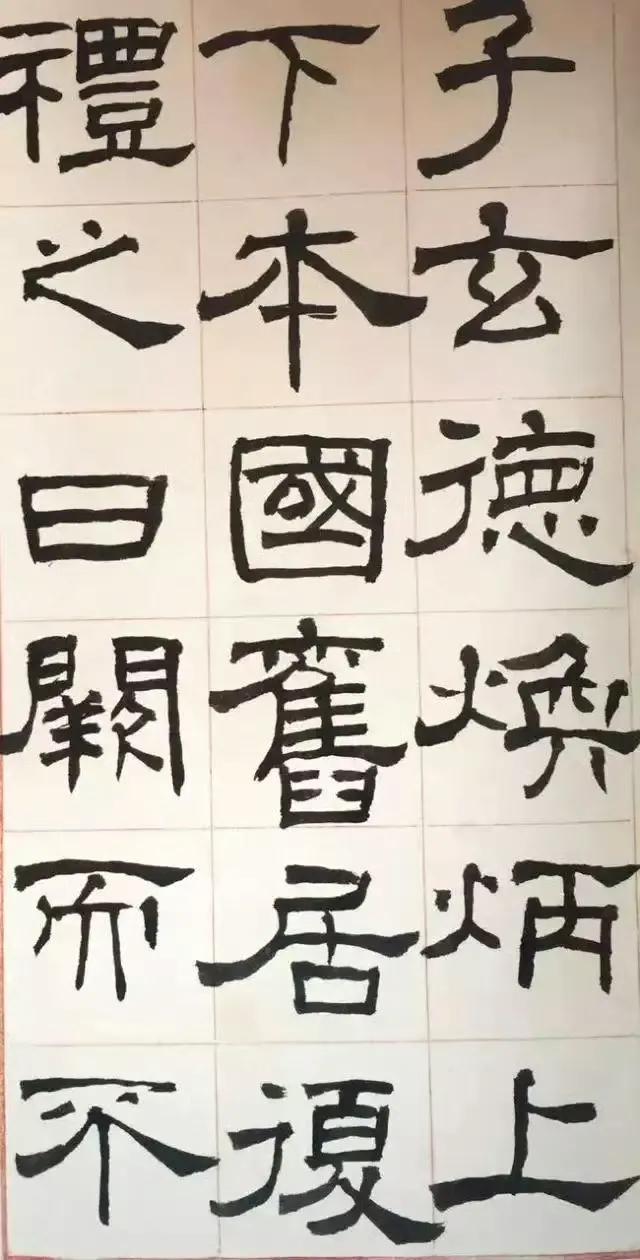 子玄德煥炳上
下本國舊居復
禮之日闕而不